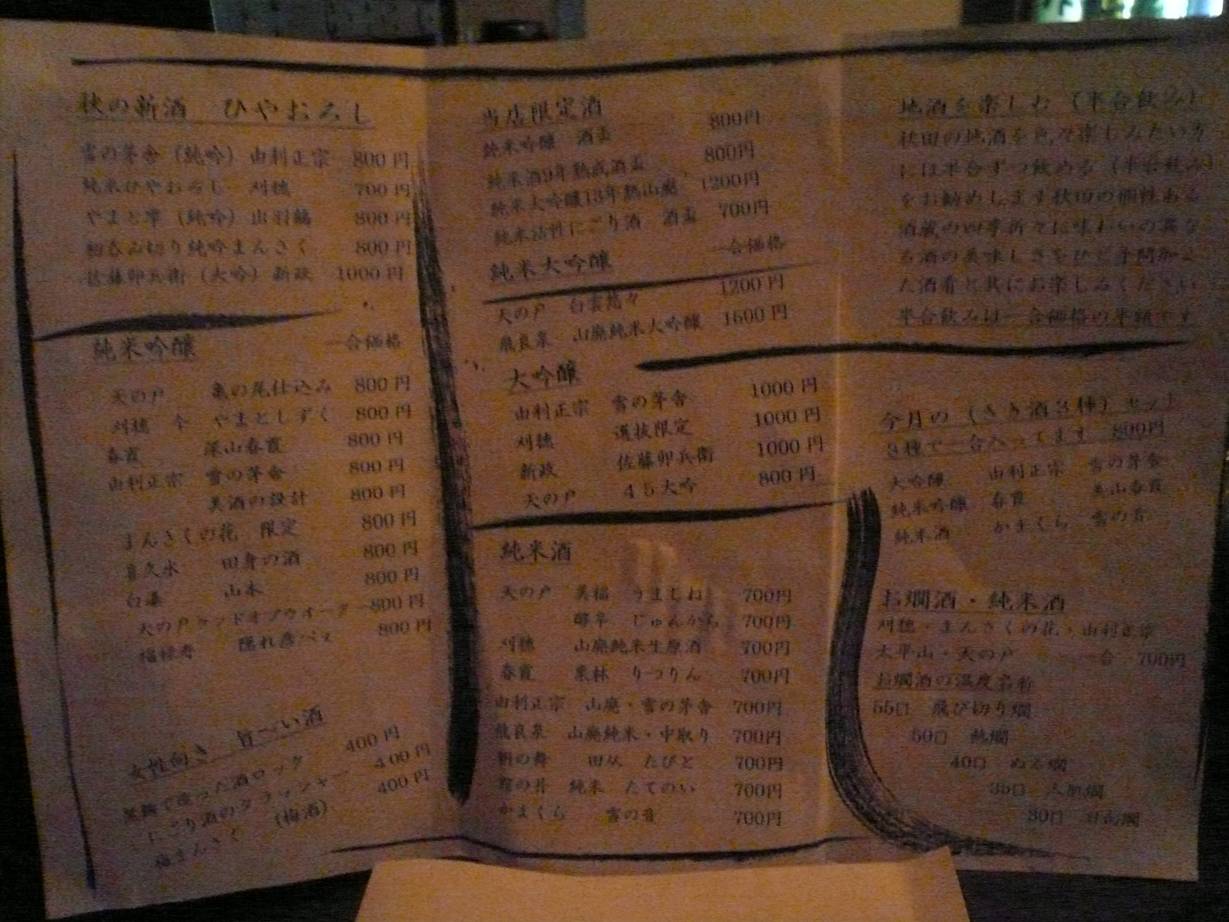 秋の新酒 ひやおろし
雪の茅舎（純吟）由利正宗 800円
純米ひやおろし 刈穂 700円
やまと雫（純吟）出羽鶴 800円
初呑み切り純吟まんさく 800円
佐藤卯兵衛（大吟）新政 1000円
純米吟醸 一合価格
天の戸 亀の尾仕込み 800円
刈穂 吟 やまとしずく 800円
春霞 深山春霞 800円
由利正宗 雪の茅舎 800円
美酒の設計 800円
まんさくの花 限定 800円
喜久水 田身の酒 800円
白瀑 山本 800円
天の戸ランドオブウォーター 800円
福禄寿 隠れ彦べえ 800円
女性向き 旨～い酒
黒麹で造った酒ロック 400円
にごり酒のクラッシャー 400円
梅まんさく （梅酒） 400円
当店限定酒
純米吟醸 酒盃 800円
純米酒9年熟成酒盃 800円
純米大吟醸13年熟山廃 1200円
純米活性にごり酒 酒盃 700円
純米大吟醸 一合価格
天の戸 白雲悠々 1200円
飛良泉 山廃純米大吟醸 1600円
大吟醸
由利正宗 雪の茅舎 1000円
刈穂 選抜限定 1000円
新政 佐藤卯兵衛 1000円
天の戸 45大吟 800円
純米酒
天の戸 美稲 うましね 700円
醇辛 じゅんから 700円
刈穂 山廃純米生原酒 700円
春霞 栗林 りつりん 700円
由利正宗 山廃・雪の茅舎 700円
飛良泉 山廃純米・中取り 700円
朝の舞 田从 たびと 700円
館の井 純米 たてのい 700円
かまくら 雪の音 700円
地酒を楽しむ（半合飲み）
秋田の地酒を色々楽しみたい方
には半合ずつ飲める（半合飲み）
をお勧めします秋田の個性ある
酒蔵の四季折々に味わいの異な
る酒の美味しさをひと手間加え
た酒肴と共にお楽しみください
半合飲みは一合価格の半額です
今月の（きき酒3種）セット
3種で一合入ってます 800円
大吟醸 由利正宗 雪の茅舎
純米吟醸 春霞 美山春霞
純米酒 かまくら 雪の音
お燗酒・純米酒
刈穂・まんさくの花・由利正宗
太平山・天の戸 一合 700円
お燗酒の温度名称
55口 飛び切り燗
50口 熱燗
40口 ぬる燗
35口 人肌燗
30口 日向燗